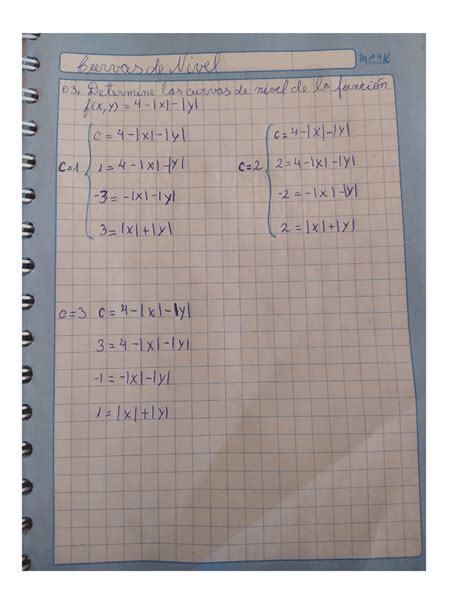 Curvas de Nivel
MARK
03. Determine las curvas de nivel de la función
f(x,y) = 4-|x|-|y|
c = 4-|x|-|y|
c=1 1 = 4-|x|-|y|
-3 = -|x|-|y|
3 = |x|+|y|
c = 4-|x|-|y|
c=2 2 = 4-|x|-|y|
-2 = -|x|-|y|
2 = |x|+|y|
c=3 c = 4-|x|-|y|
3 = 4-|x|-|y|
-1 = -|x|-|y|
1 = |x|+|y|